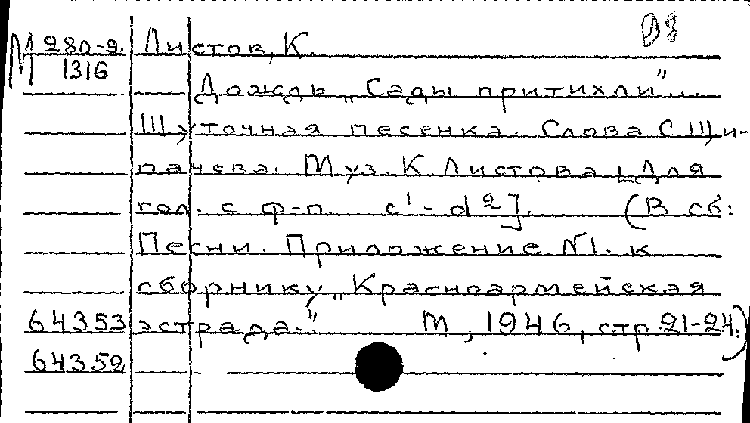 М 280-2 Листов, К.
1316
Дождь „Сады притихли"...
Шуточная песенка. Слова С. Щи-
пачева. Муз. К Листова [Для
гол. с ф-п. c¹-d²]. (В сб:
Песни. Приложение №1. к
сборнику „Красноармейская
64353 эстрада." М, 1946, стр. 21-24.)
64352